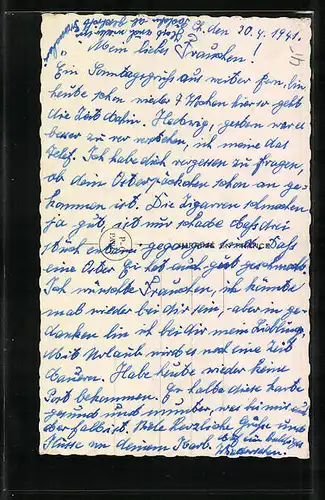 Ch. den 20.4.1941.
Mein liebes Frauchen!
Ein Sonntagsgruß aus weiter Fern, bin
heute schon wieder 9 Wochen hier so geht
die Zeit dahin. Hedwig, gestern war es
besser zu verstehen, ich meine das
Telef. Ich habe dich vergessen zu fragen,
ob dein Osterpäckchen schon an ge-
kommen ist. Die Zigarren schmecken
ja gut, ist nur schade daß drei
Stück
eine Oster Ei hat auch gut geschmeckt.
Ich wünschte Frauchen, ich könnte
mal wieder bei dir sein, aber in ge-
danken bin ich bei dir mein Liebling,
Mit Urlaub wird es noch eine Zeit
dauern. Habe heute wieder keine
Post bekommen.
gesund und munter, was bei mir auch
der Fall ist. Viele herzliche Grüße und
Küsse von deinem Karl. Auf ein baldiges
Wiedersehen.